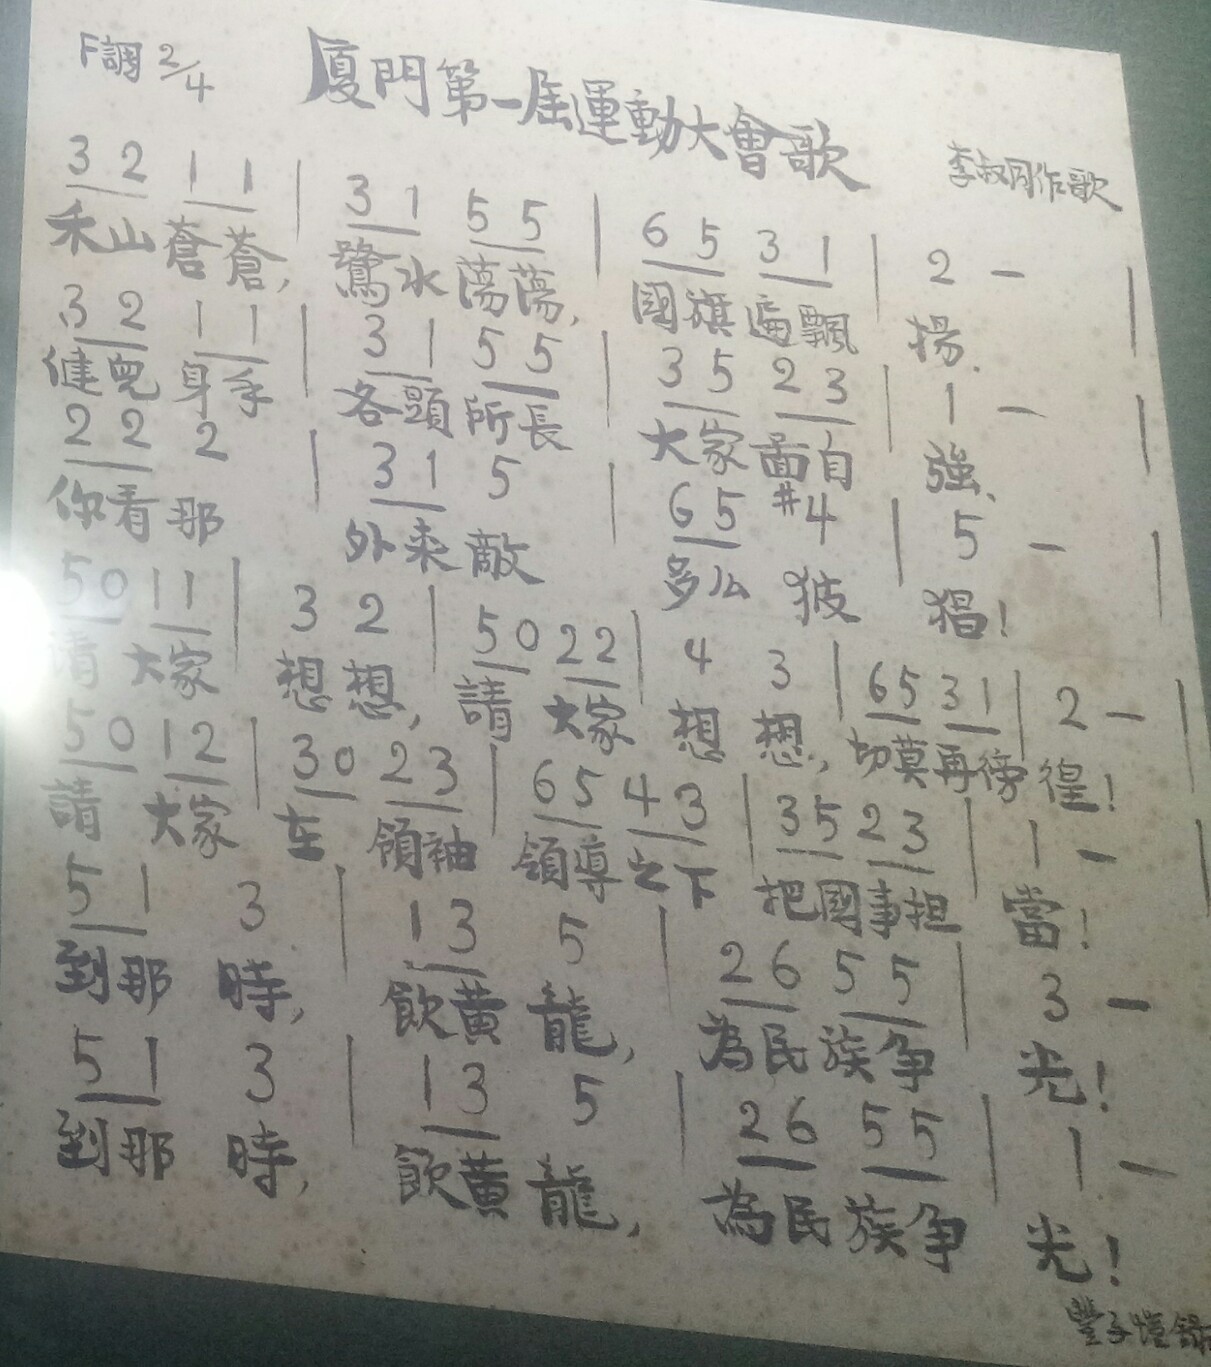 F調 2/4
厦門第一屆運動大會歌
李叔同作歌
3 2 1 1 | 3 1 5 5 | 6 5 3 1 | 2 — |
禾山蒼蒼, 鷺水蕩蕩, 國旗遍飄揚.
3 2 1 1 | 3 1 5 5 | 3 5 2 3 | 1 — |
健兒身手 各顯所長 大家圖自強、
2 2 2 | 3 1 5 | 6 5 #4 | 5 — |
你看那 外來敵 多么 猖!
5 0 1 1 | 3 2 | 5 0 2 2 | 4 3 | 6 5 3 1 | 2 — |
請 大家 想想, 請 大家 想想, 切莫再徬徨!
5 0 1 2 | 3 0 2 3 | 6 5 4 3 | 3 5 2 3 | 1 — |
請 大家 在 領袖 領導之下 把國事担當!
5 1 3 | 1 3 5 | 2 6 5 5 | 3 — |
到那時, 飲黄龍, 為民族争光!
5 1 3 | 1 3 5 | 2 6 5 5 | 1 — |
到那時, 飲黄龍, 為民族争光!
豐子愷錄